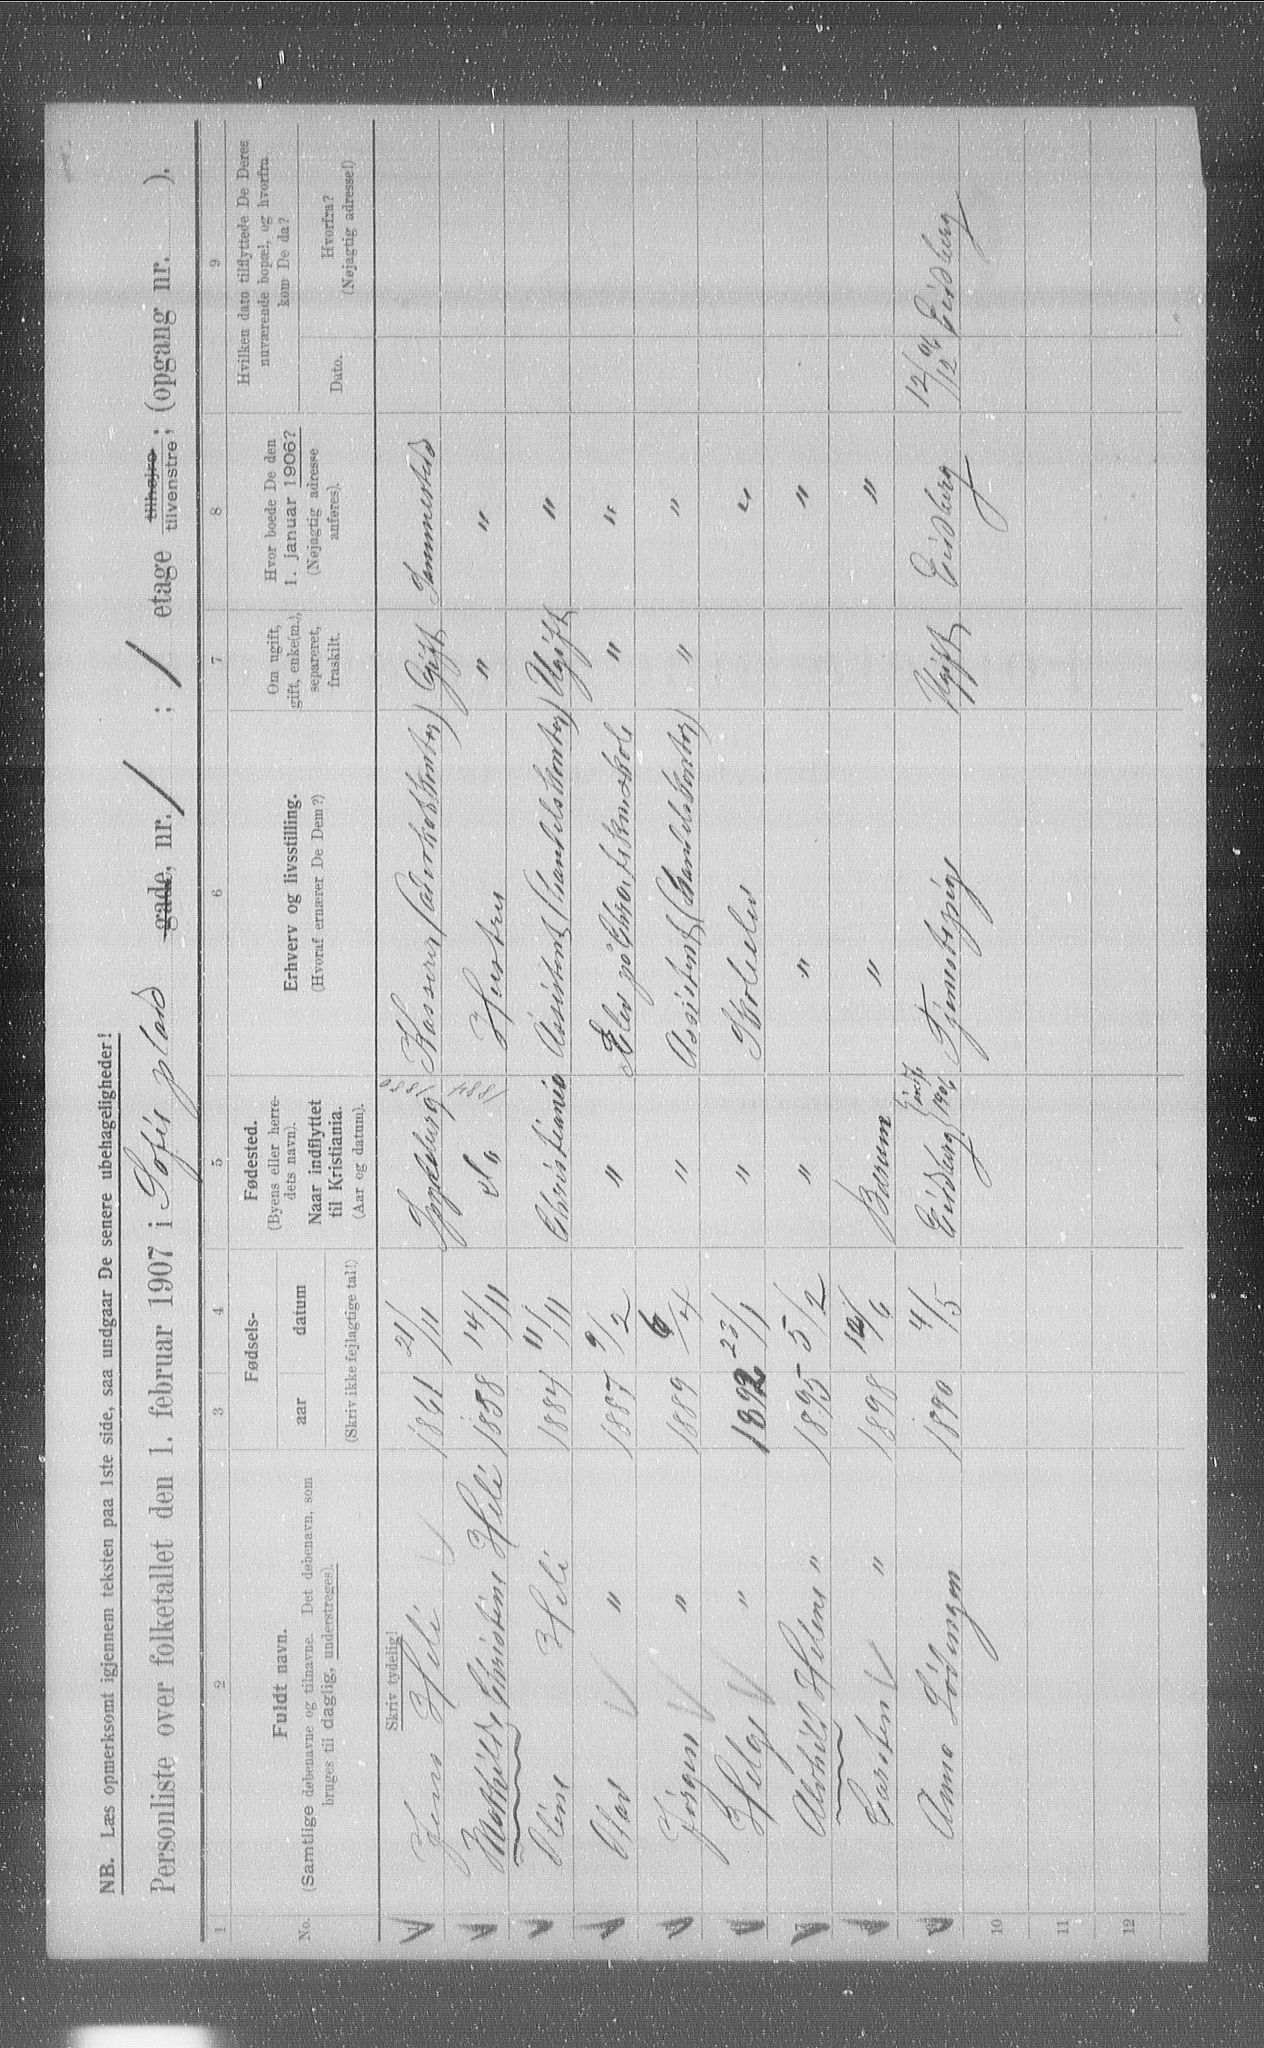 NB. Læs opmerksomt igjennem teksten paa 1ste side, saa undgaar De senere ubehageligheder!
Personliste over folketallet den 1. februar 1907 i Sofis plads gade, nr. 1 ; 1 etage tilhøjre tilvenstre; (opgang nr. ).
1 2 3 4 5 6 7 8 9
No.
Fuldt navn.
(Samtlige døbenavne og tilnavne. Det døbenavn, som
bruges til daglig, understreges).
Fødsels-
aar datum
(Skriv ikke fejlagtige tal!)
Fødested.
(Byens eller herre-
dets navn).
Naar indflyttet
til Kristiania.
(Aar og datum).
Erhverv og livsstilling.
(Hvoraf ernærer De Dem?)
Om ugift,
gift, enke(m.),
separeret,
fraskilt.
Hvor boede De den
1. januar 1906?
(Nøjagtig adresse
anføres).
Hvilken dato tilflyttede De Deres
nuværende bopæl, og hvorfra
kom De da?
Dato.
Hvorfra?
(Nøjagtig adresse!)
Skriv tydelig!
Jens Heli 1861 21/11 1880 Kasserer Gift Sammesteds
Mathilde Christine Heli 1858 14/11 " 1884 Hustru " "
Heli 1884 11/11 Christiania Assistent (Handelskontor) Ugift "
Olav " 1887 9/2 " Elev på Chra. tekn. skole " "
Jörgen " 1889 6/4 " Assistent (Handelskontor) " "
Helge " 1892 23/11 " Skoleelev "
Alvhild Helene " 1895 5/2 " " "
Carsten " 1898 12/6 Bærum " "
Anna 1890 4/5 Eidsberg Tjenestepige Ugift Eidsberg 12/12 06 Eidsberg
10
11
12